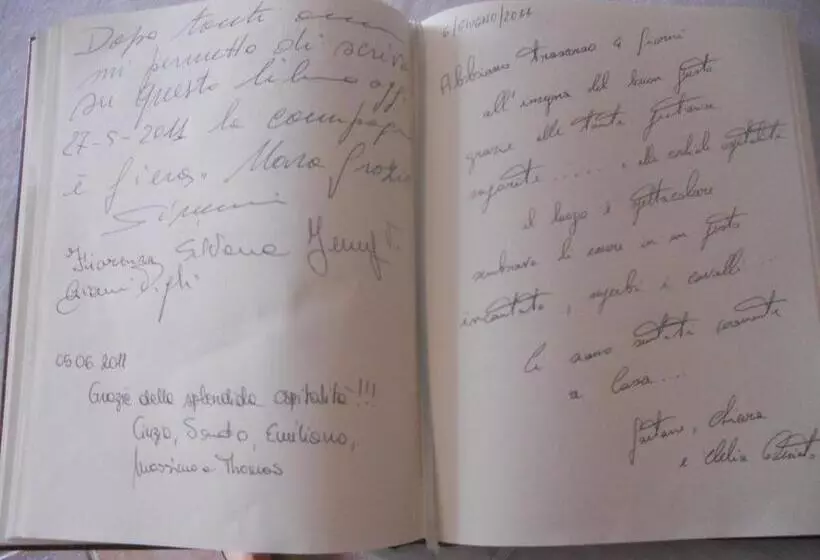 Dopo tanti anni
mi permetto di scrive
su questo libro oggi
27-5-2011 la compagn
è fiera. Mara Grazie
Fiorenza Silvana
Gianni
05.06.2011
Grazie della splendida ospitalità!!!
Cinzia, Sandro, Emiliano,
Massimo e Thomas
6/GIUGNO/2011
Abbiamo trascorso 4 giorni
all'insegna del buon gusto
grazie alle tante pietanze
ospitalità
il luogo è spettacolare
sembrava di essere in un posto
incantato, superbi i cavalli...
Ci siamo sentiti veramente
a casa...
Gaetano, Chiara
e Clelia